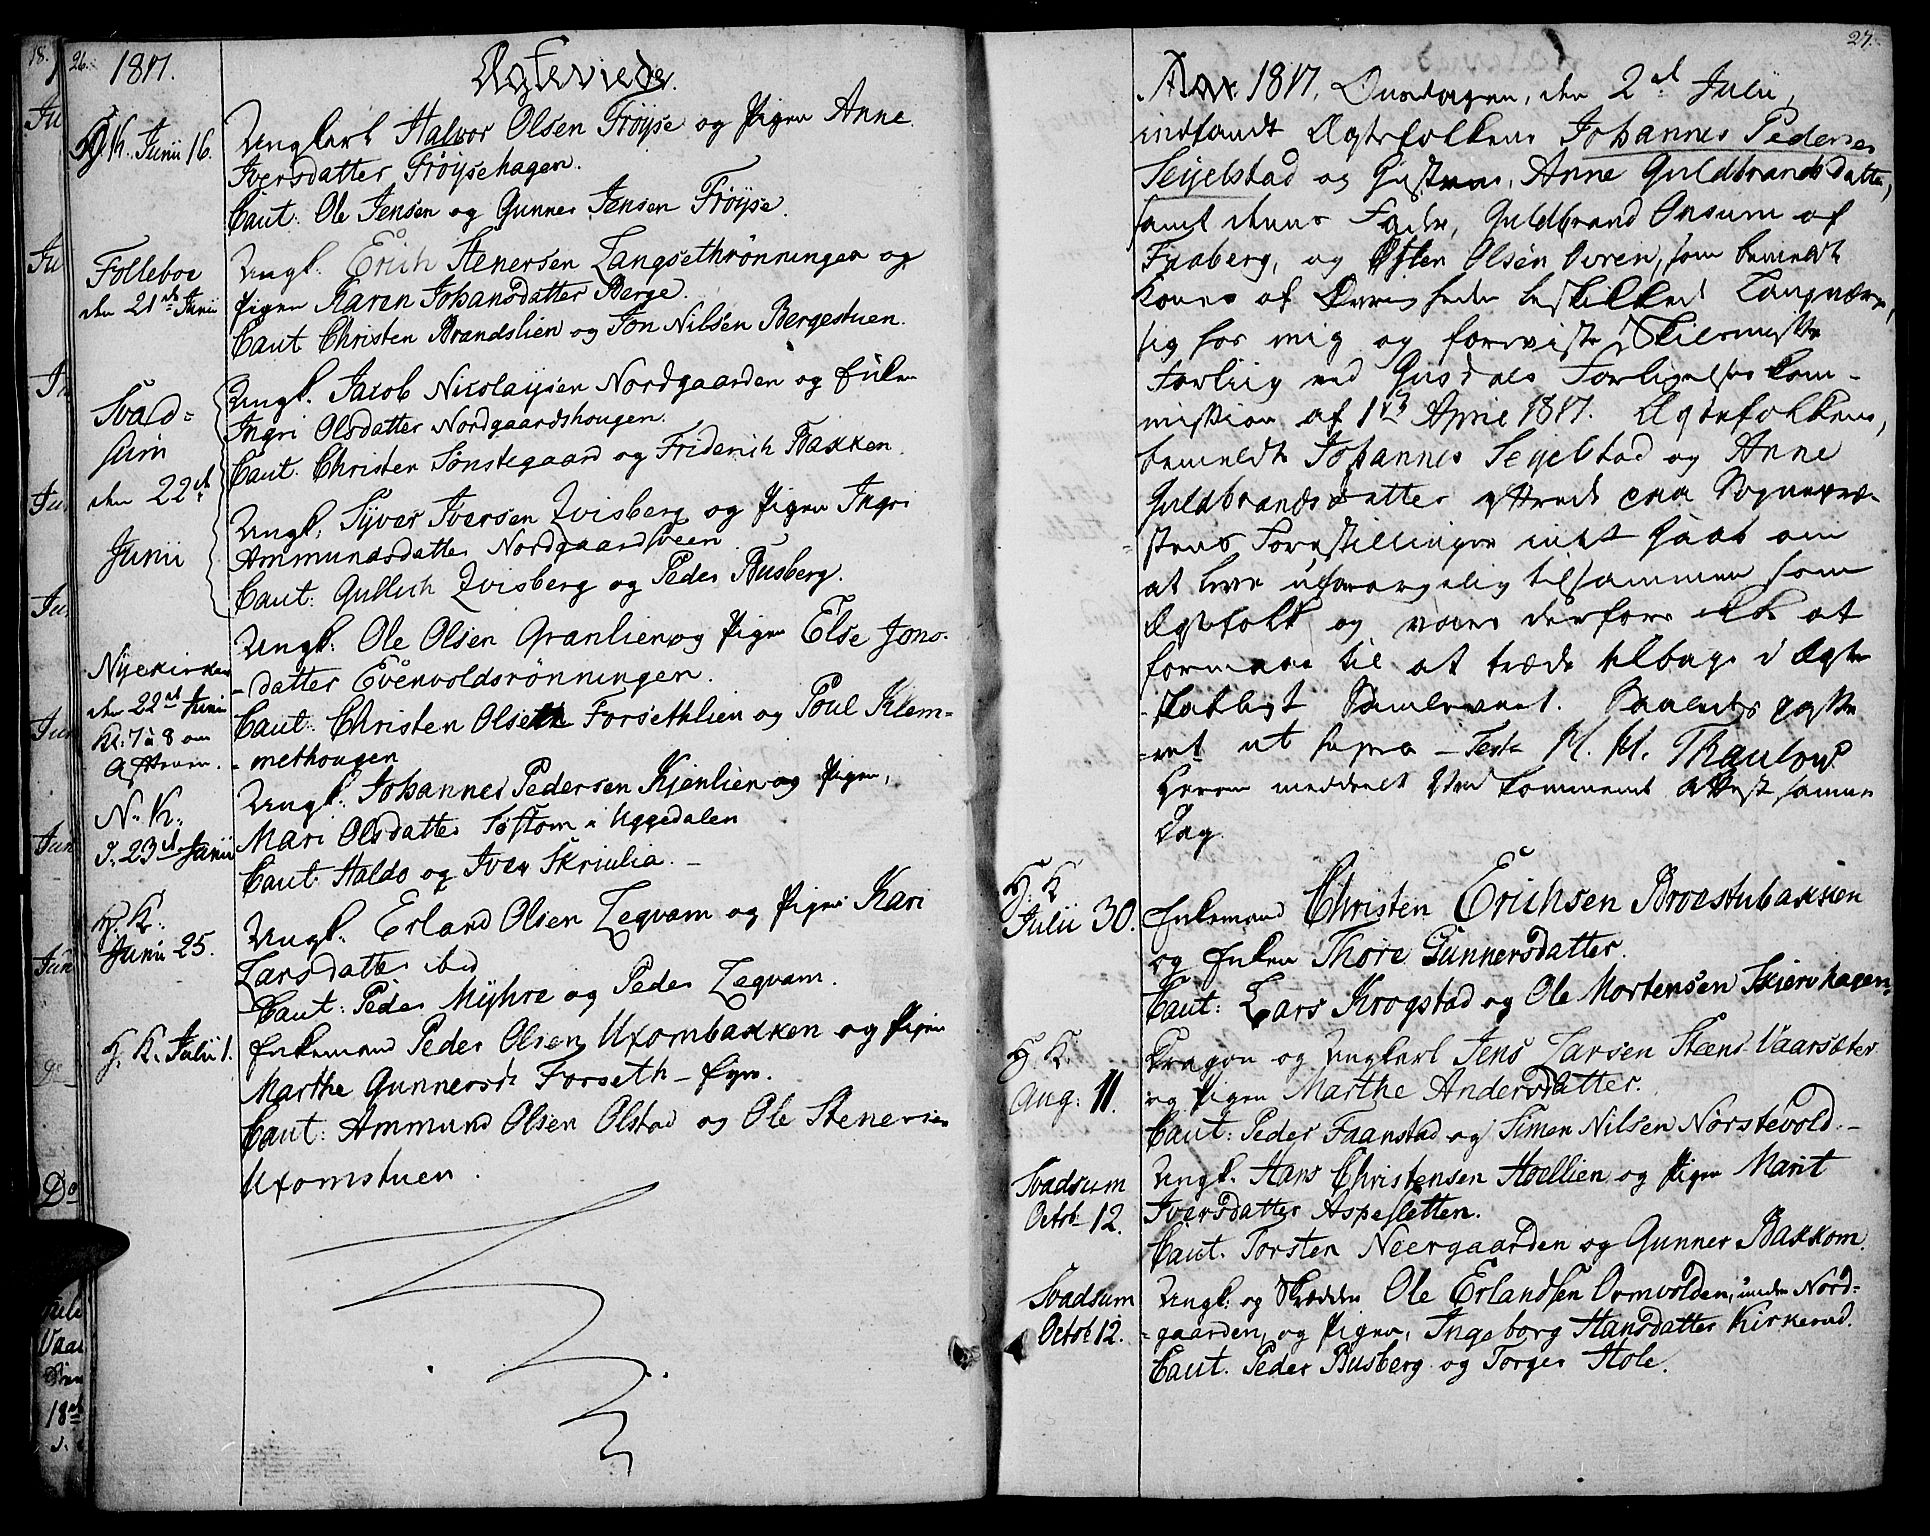 26.
1817.
Ægteviede.
H. K. Junii 16.
Ungkarl Halvor Olsen Frøyse og Pigen Anne
Iversdatter Frøysehagen.
Caut: Ole Jensen og Gunner Jensen Frøyse.
Folleboe
den 21de Junii
Ungk. Erich Stenersen Langsethrønningen og
Pigen Karen Johansdatter Berge.
Caut Christen Brandslien og Jon Nilsen Bergestuen.
Svad=
sum
den 22d
Junii
Ungk. Jacob Nicolaysen Nordgaarden og Enken
Ingri Olsdatter Nordgaardshougen.
Caut. Christen Sønstegaard og Friderich Bakken.
Ungk. Syver Iversen Qvisberg og Pigen Ingri
Ammundsdatter Nordgaardsveen
Caut: Gullich Qvisberg og Peder Busberg.
Nyekirken
den 22de Junii
Kl: 7 à 8 om
Aftenen.
Ungk: Ole Olsen Granlien og Pigen Else Jons-
-datter Evenvoldsrønningen.
Caut: Christen Olseth Forsethlien og Poul Klem=
=methougen
N. K.
d. 23d Junii
Ungk: Johannes Pedersen Kjenlien og Pigen,
Mari Olsdatter Toftom i Uggedalen
Caut: Haldo og Iver Skriulia. -
H. K.
Junii 25.
Ungk. Erland Olsen Legvam og Pigen Kari
Larsdatter ibid
Caut: Peder Myhre og Peder Legvam.
H. K. Julii 1.
Enkemand Peder Olsen Uxombakken og Pigen
Marthe Gunnersdr Forseth-Eyen.
Caut: Ammund Olsen Olstad og Ole Stenersen
Uxomstuen.
27.
Anno 1817, Onsdagen, den 2d Julii,
indfandt Ægtefolkene Johannes Pedersen
Seyelstad og Hustrue, Anne Guldbrandsdatter,
samt dennes Fader, Guldbrand Onsum af
Faaberg, og Østen Olsen Overen, som bemeldt
Kones af Øvrigheden beskikked Laugværge,
sig for mig og foreviste Skilsmisse
Forliig ved Gusdals Forligelses Com-
mission af 1ste April 1817. Ægtefolkene,
bemeldte Johannes Seyelstad og Anne
Guldbrandsdatter yttrede paa Sognepræ-
stens Forestillinger intet Haab om
at leve uforargelig tilsammen som
Ægtefolk og vare derfore ikke at
formaae til at træde tilbage i Ægte-
skabligt Samlevnet. Saaledes passe-
ret ut supra - Test. H. H. Thaulow
Herom meddeelt Vedkommende Attest samme
Dag.
H. K
Julii 30.
Enkemand Christen Erichsen Broestubakken
og Enken Thore Gunnersdatter.
Caut: Lars Krogstad og Ole Mortensen Skiervhagen.
H. K.
Aug: 11.
Dragon og Ungkarl Jens Larsen Stand-Vaarsæter
og Pigen Marthe Andersdatter.
Caut: Peder Faanstad og Simen Nilsen Nørstevold. -
Svadsum
Octob: 12.
Ungk. Hans Christensen Hoellien og Pigen Marit
Iversdatter Aspesletten.
Caut. Torsten Neergaarden og Gunner Bakkom.
Svadsum
Octob: 12.
Ungk: og Skrædder Ole Erlandsen Ormvolden, under Nord=
=gaarden, og Pigen, Ingeborg Hansdatter Kirkerud.
Caut. Peder Busberg og Torger Hole.